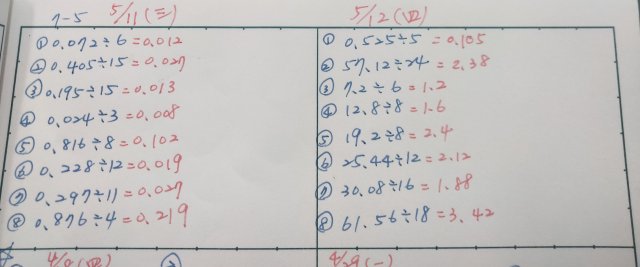 7-5 5/11(三)
① 0.072÷6=0.012
② 0.405÷15=0.027
③ 0.195÷15=0.013
④ 0.024÷3=0.008
⑤ 0.816÷8=0.102
⑥ 0.228÷12=0.019
⑦ 0.297÷11=0.027
⑧ 0.876÷4=0.219
5/12(四)
① 0.525÷5=0.105
② 57.12÷24=2.38
③ 7.2÷6=1.2
④ 12.8÷8=1.6
⑤ 19.2÷8=2.4
⑥ 25.44÷12=2.12
⑦ 30.08÷16=1.88
⑧ 61.56÷18=3.42
4/29(一)